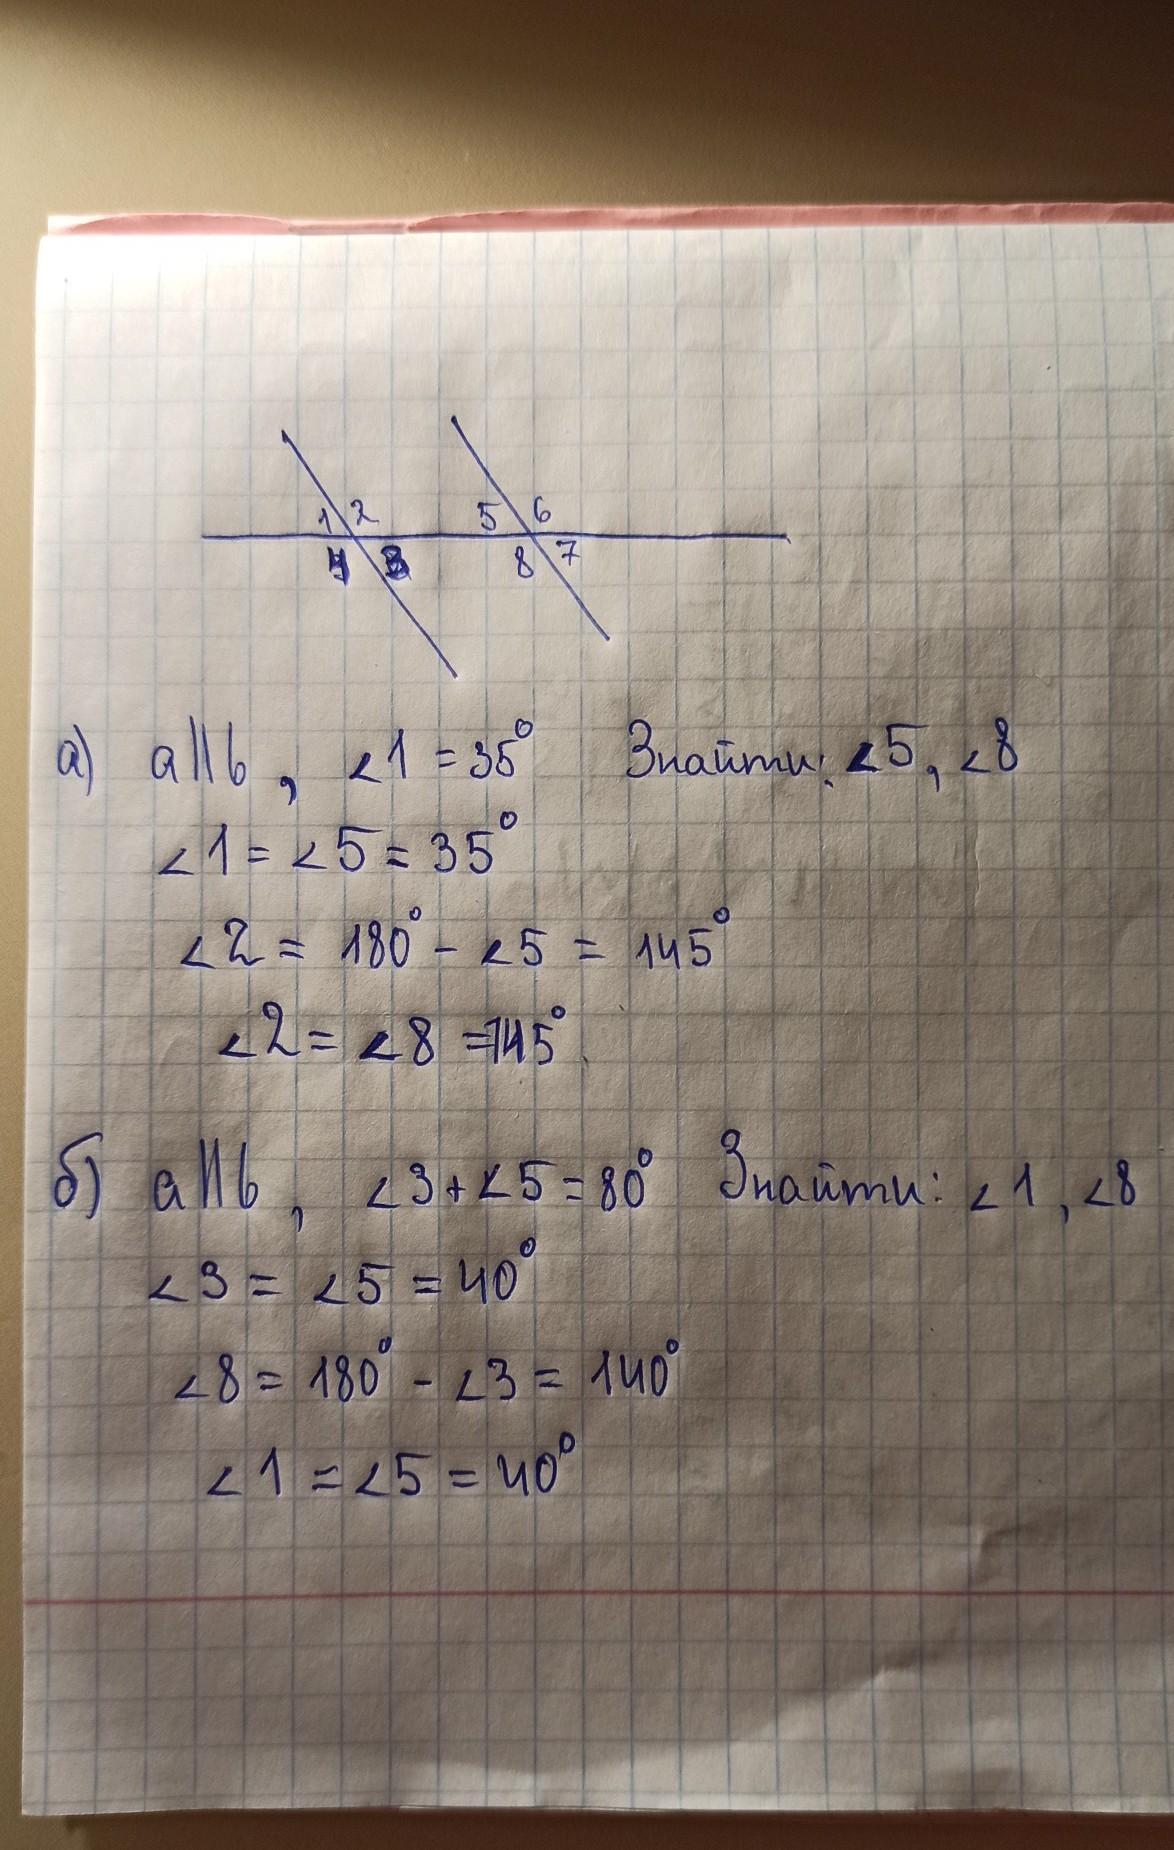 1 2 5 6
4 3 8 7
а) a||b, ∠1 = 35° Знайти: ∠5, ∠8
∠1 = ∠5 = 35°
∠2 = 180° - ∠5 = 145°
∠2 = ∠8 = 145°
б) a||b, ∠3 + ∠5 = 80° Знайти: ∠1, ∠8
∠3 = ∠5 = 40°
∠8 = 180° - ∠3 = 140°
∠1 = ∠5 = 40°